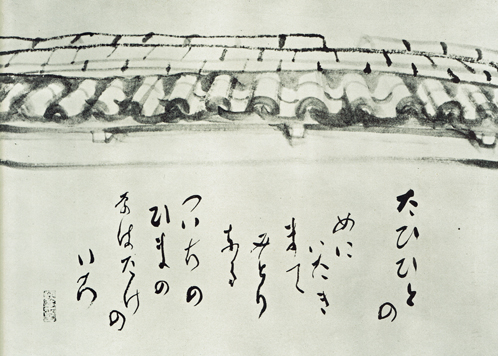 たひひとの
めに
いたき
まて
みとり
なる
ついちの
ひまの
なはたけの
いろ